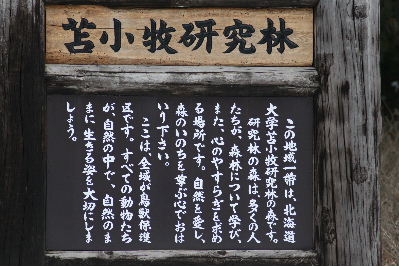 苫小牧研究林
この地域一帯は、北海道
大学苫小牧研究林の森です。
研究林の森は、多くの人
たちが、森林について学び、
また、心のやすらぎを求め
る場所です。自然を愛し、
森のいのちを学ぶ心でおは
いり下さい。
ここは、全域が鳥獣保護
区です。すべての動物たち
が、自然の中で、自然のま
まに生きる姿を大切にしま
しょう。